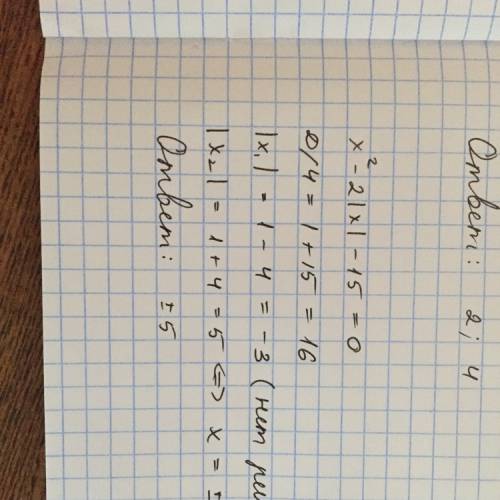 Ответ: 2; 4
x² - 2|x| - 15 = 0
D/4 = 1 + 15 = 16
|x₁| = 1 - 4 = -3 (нет
|x₂| = 1 + 4 = 5 <=> x =
Ответ: ±5